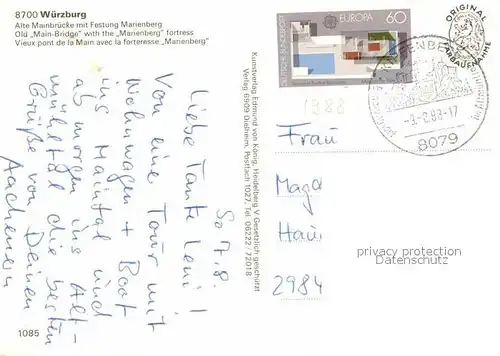 8700 Würzburg
Alte Mainbrücke mit Festung Marienberg
Old „Main-Bridge" with the „Marienberg" fortress
Vieux pont de la Main avec la forteresse „Marienberg"
So 7.8.
Liebe Tante Leni!
Von einer Tour mit
Wohnwagen + Boot
ins Maintal und
ab morgen ins Alt-
mühltal die besten
Grüße von Deinen
Aachenern
1085
Kunstverlag Edmund von König, Heidelberg V Gesetzlich geschützt
Verlag 6909 Dielheim, Postfach 1027, Tel. 06222/72018
DEUTSCHE BUNDESPOST
EUROPA
60
ORIGINAL
FARBAUFNAHME
8079
1988
Frau
Magd
Hau
2984
privacy protection
www.ansichtskarten-center.de